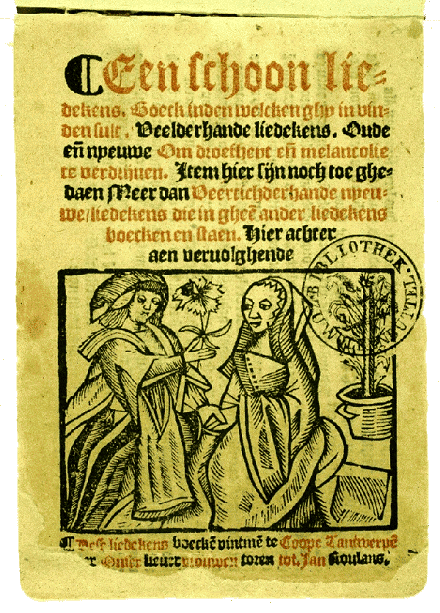 ¶Een schoon lie-
dekens. Boeck inden welcken ghy in vin-
den sult. Veelderhande liedekens. Oude
eñ nyeuwe Om droefheyt eñ melancolie
te verdrijuen. Item hier sijn noch toe ghe-
daen Meer dan Veertichderhande nyeu-
we/liedekens die in gheẽ ander liedekens
boecken en staen. Hier achter
aen vervolghende
BIBLIOTHEK
¶ Dese liedekens boeckẽ vintmẽ te Coope Tantwerpẽ
lieuer vrouwen toren tot. Jan Roulans.